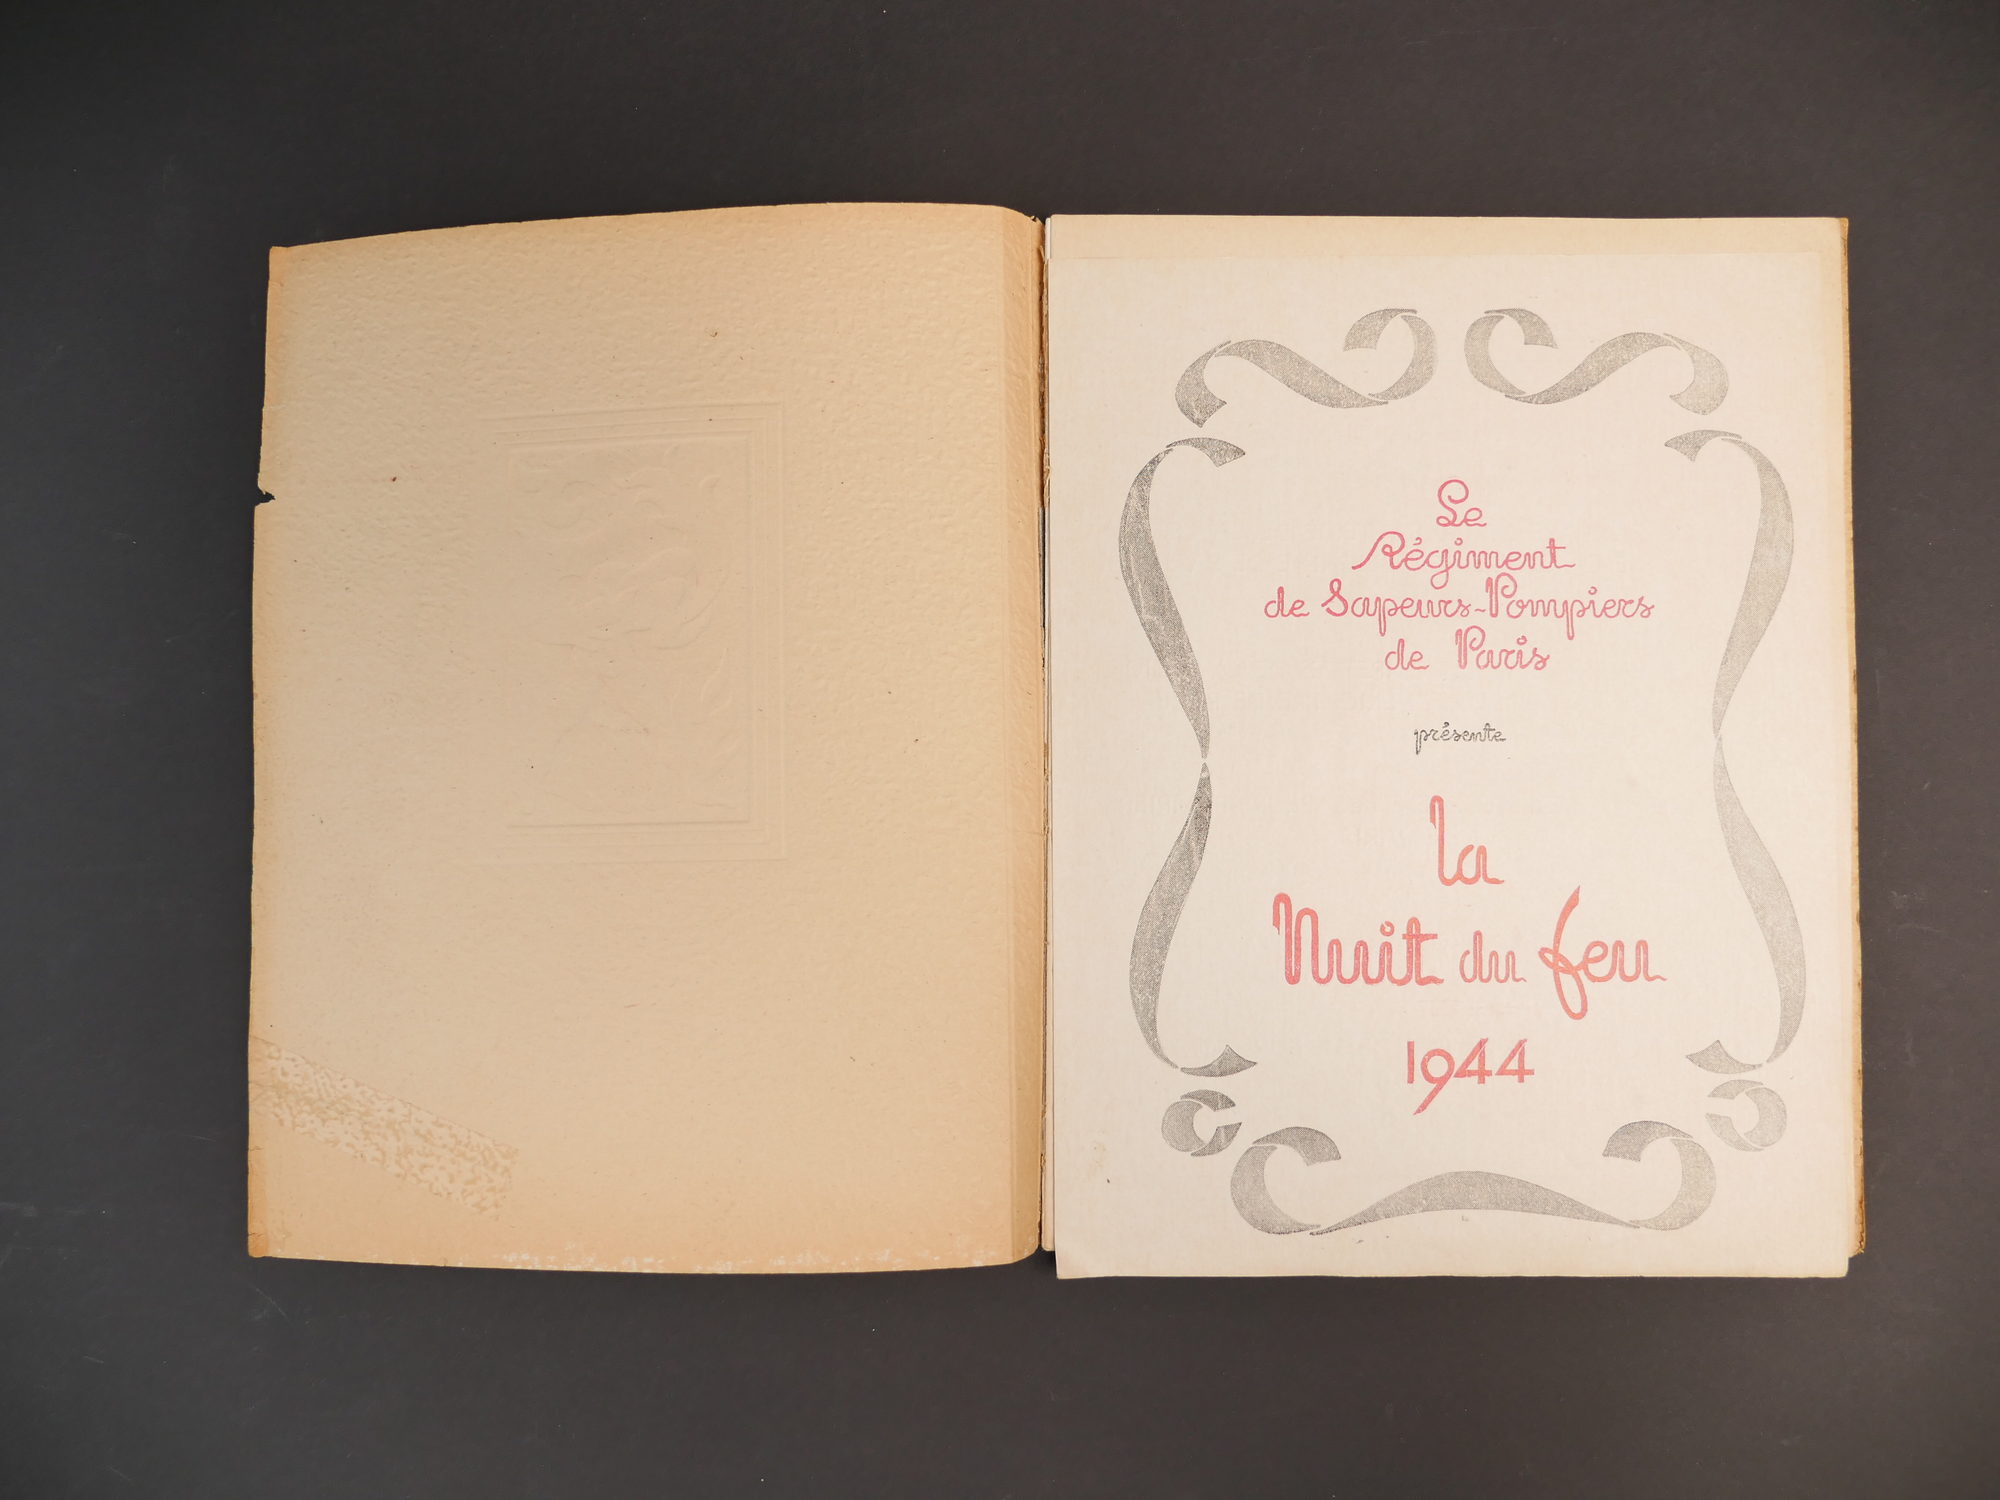 Le
Régiment
de Sapeurs-Pompiers
de Paris
présente
la
Nuit du feu
1944